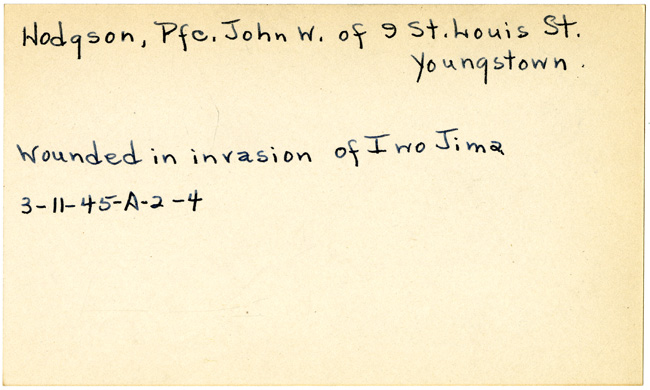 Hodgson, Pfc. John W. of 9 St. Louis St.
Youngstown.
Wounded in invasion of Iwo Jima
3-11-45-A-2-4